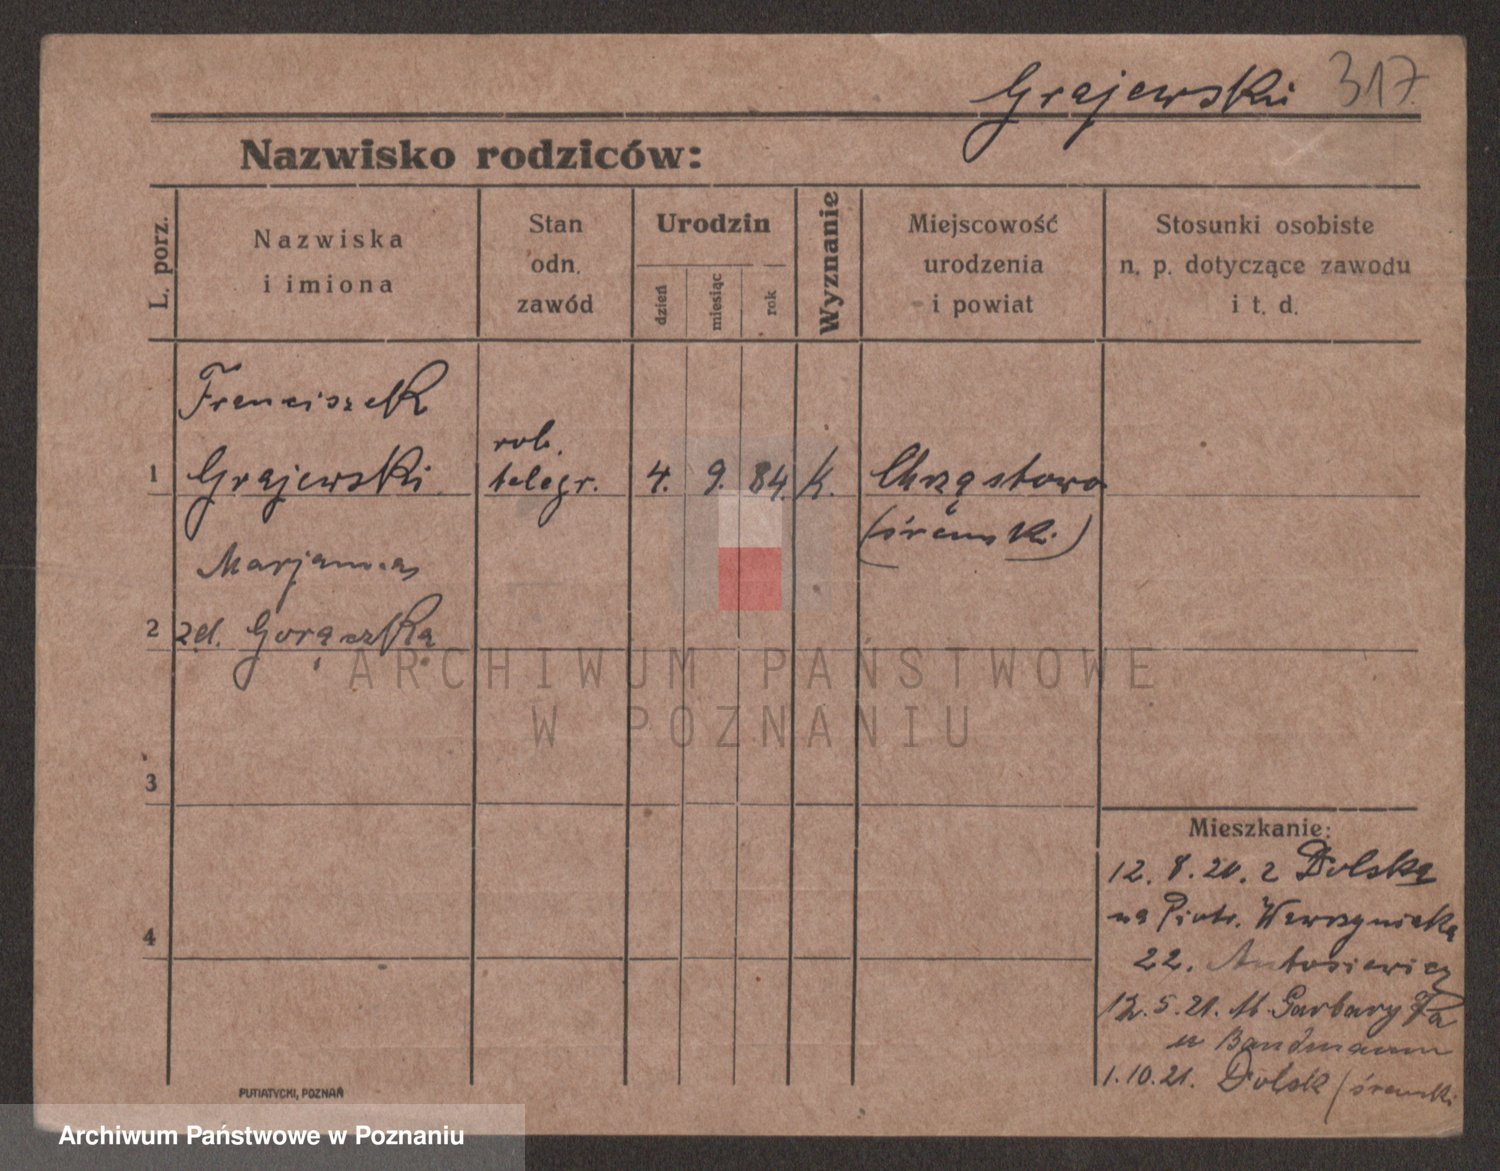 Grajewski 317.
Nazwisko rodziców:
L. porz.
Nazwiska
i imiona
Stan
odn.
zawód
Urodzin
dzień
miesiąc
rok
Wyznanie
Miejscowość
urodzenia
i powiat
Stosunki osobiste
n. p. dotyczące zawodu
i t. d.
Franciszek
1 Grajewski
rob.
telegr.
4. 9. 84. K.
Chrząstowo
(śremski)
Marjanna
2 zd. Gorączka
3
4
Mieszkanie:
12. 8. 20. z Dolska
na Piotr. Wawrzyniaka
22. Antosiewicz
12. 5. 21. Garbary
u Bandmann
1. 10. 21. Dolsk (śremski
PUTIATYCKI, POZNAŃ
ARCHIWUM PAŃSTWOWE
W POZNANIU
Archiwum Państwowe w Poznaniu